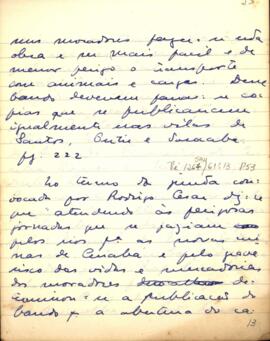 nus moradores fazer-se esta
obra e ser mais facil e de
menor perigo o transporte
com animaes e cargas. Deste
bando deveriam tirar-se co-
pias que se publicariam
igualmente nas vilas de
Santos, Outú e Sorocaba.
pg. 222
P53
No termo da junta con-
vocada por Rodrigo Cesar diz-se
que atendendo às perigosas
jornadas que se faziam
pelos rios pª as novas mi-
nas de Cuiabá e pelo grave
risco das vidas e mercadorias
dos moradores de-
terminou-se a publicação do
bando pª a abertura do ca-
13